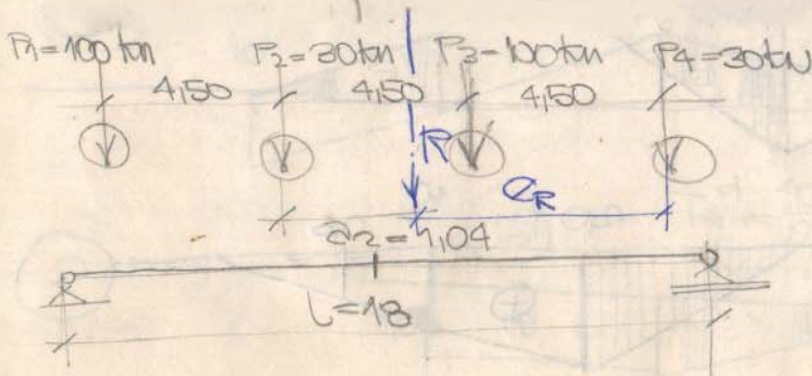 P1=100kN P2=30kN P3=100kN P4=30kN
4,50 4,50 4,50
R
eR
a2=1,04
l=18